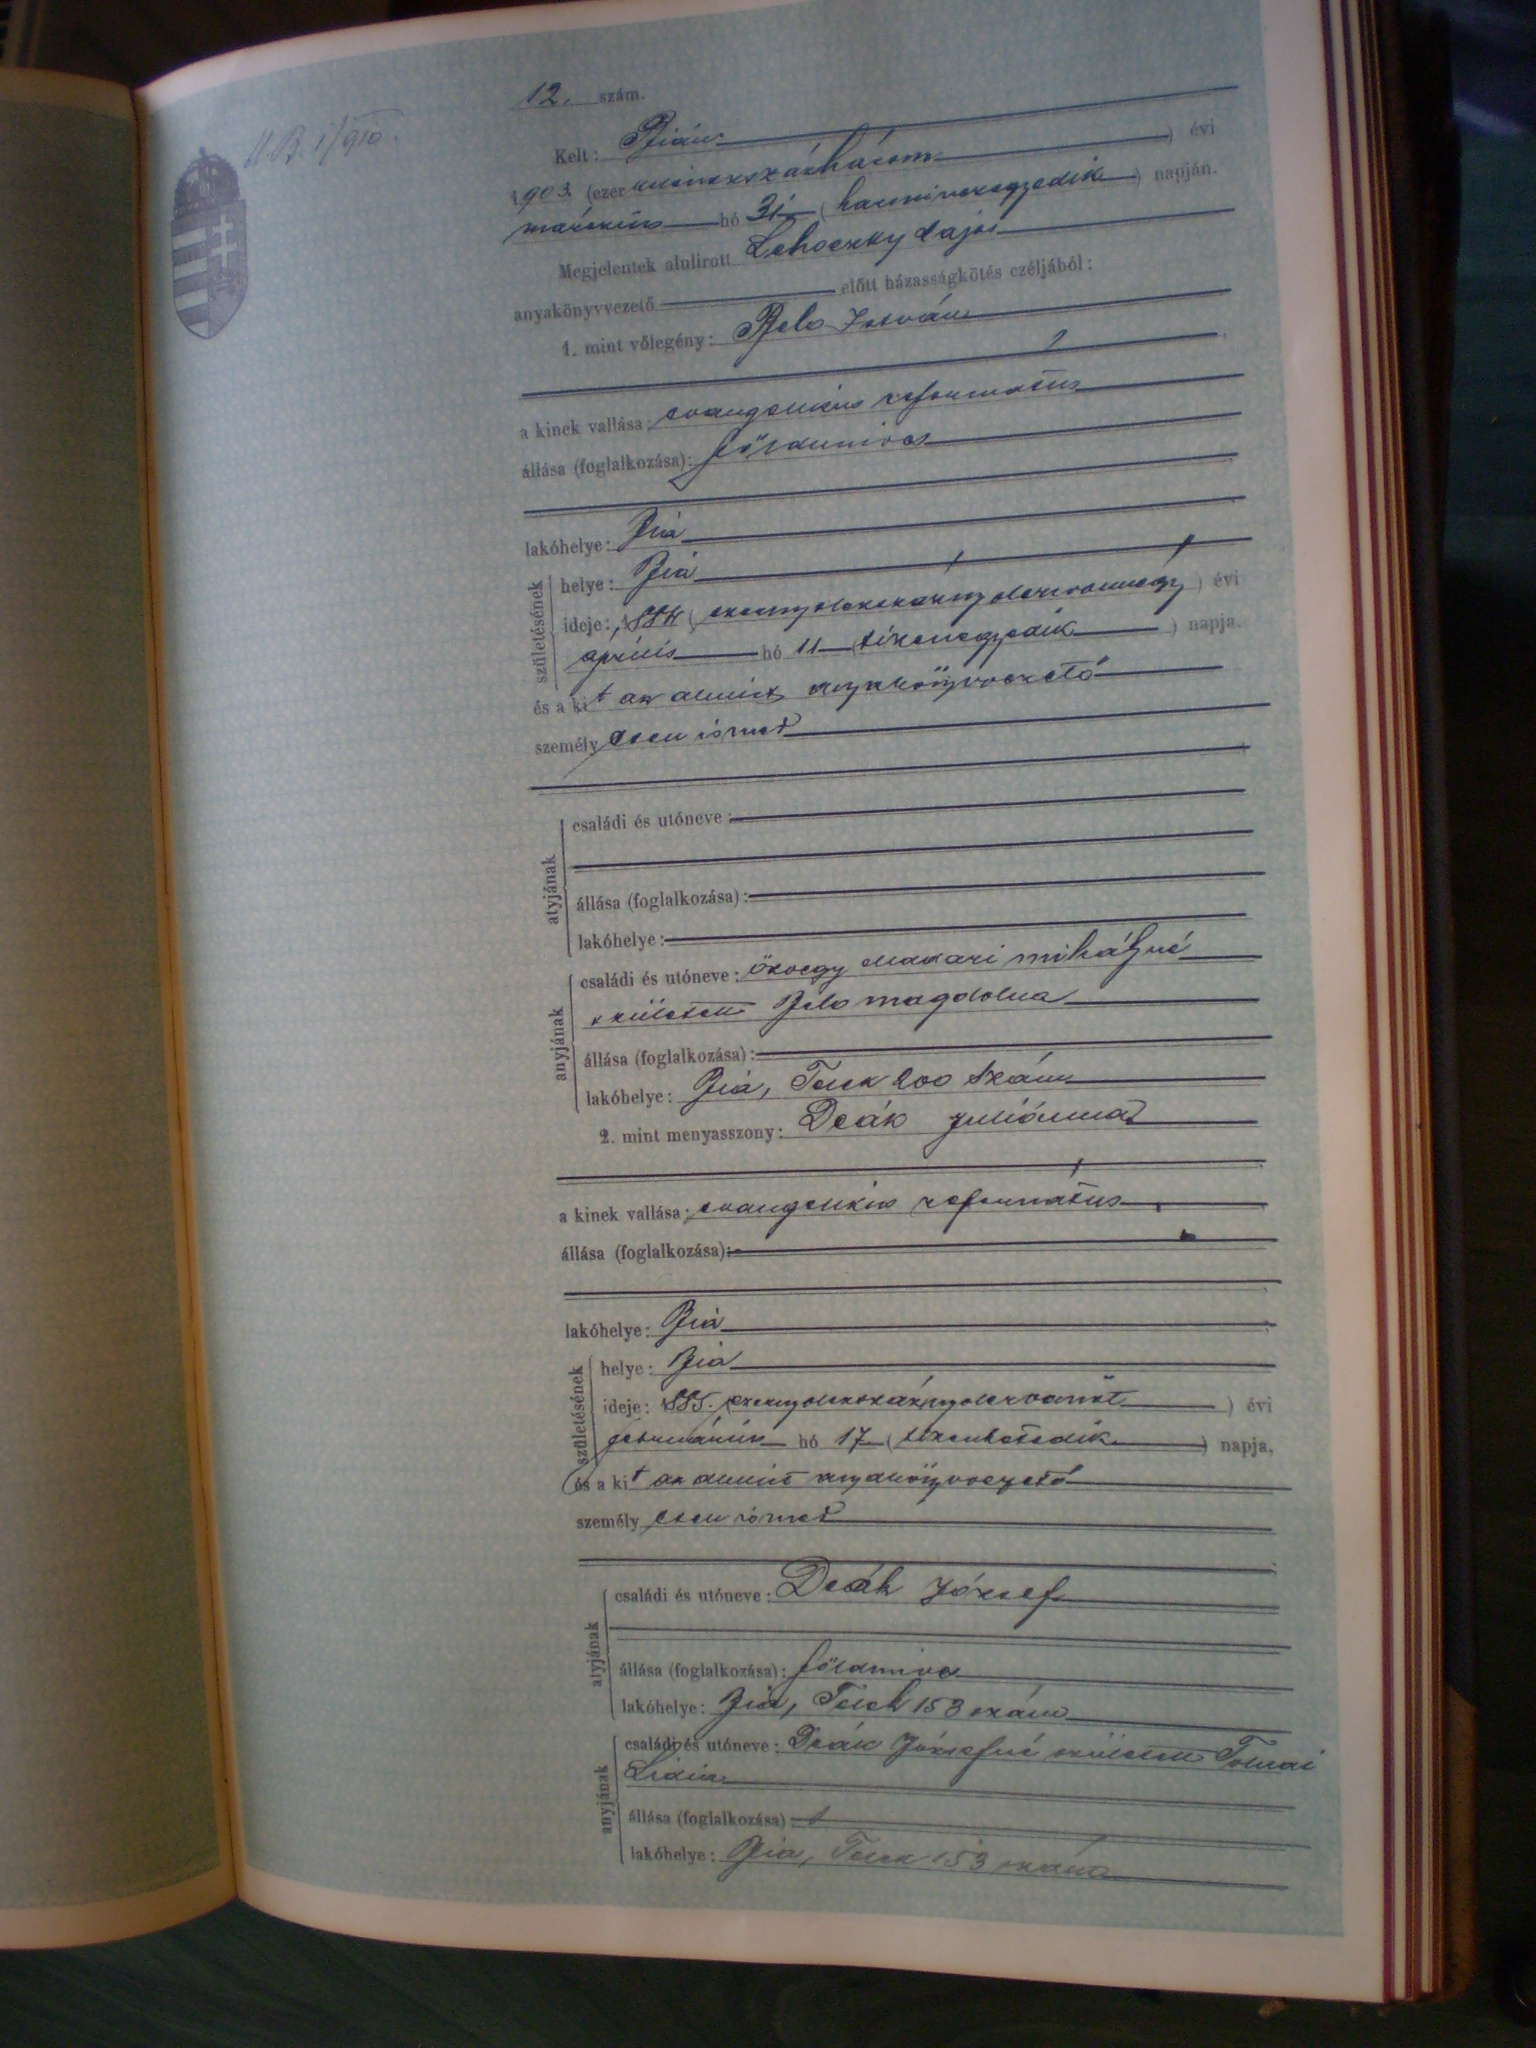 12. szám.
Kelt: Bián
1903 (ezerkilenczszázhárom) évi
márczius hó 31 (harminczegyedik) napján.
Megjelentek alulirott Lehoczky Lajos
anyakönyvvezető előtt házasságkötés czéljából:
1. mint vőlegény: Belo István
a kinek vallása: evangelikus református
állása (foglalkozása): földmives
lakóhelye: Bia
születésének
helye: Bia
ideje: 1884 (ezernyolczszáznyolczvannégy) évi
április hó 11 (tizenegyedik) napja.
és a kit az alulirt anyakönyvvezető
személyesen ismer
atyjának
családi és utóneve:
állása (foglalkozása):
lakóhelye:
anyjának
családi és utóneve: özvegy Makari Mihályné
született Belo Magdolna
állása (foglalkozása):
lakóhelye: Bia, 200 szám
2. mint menyasszony: Deák Juliánna
a kinek vallása: evangelikus református
állása (foglalkozása):
lakóhelye: Bia
születésének
helye: Bia
ideje: 1885. (ezernyolczszáznyolczvanöt) évi
februárius hó 17 (tizenhetedik) napja,
és a kit az alulirt anyakönyvvezető
személyesen ismer
atyjának
családi és utóneve: Deák József
állása (foglalkozása): földmives
lakóhelye: Bia, 153 szám
anyjának
családi és utóneve: Deák Józsefné született Tolnai
Lidia
állása (foglalkozása):
lakóhelye: Bia, 153 szám